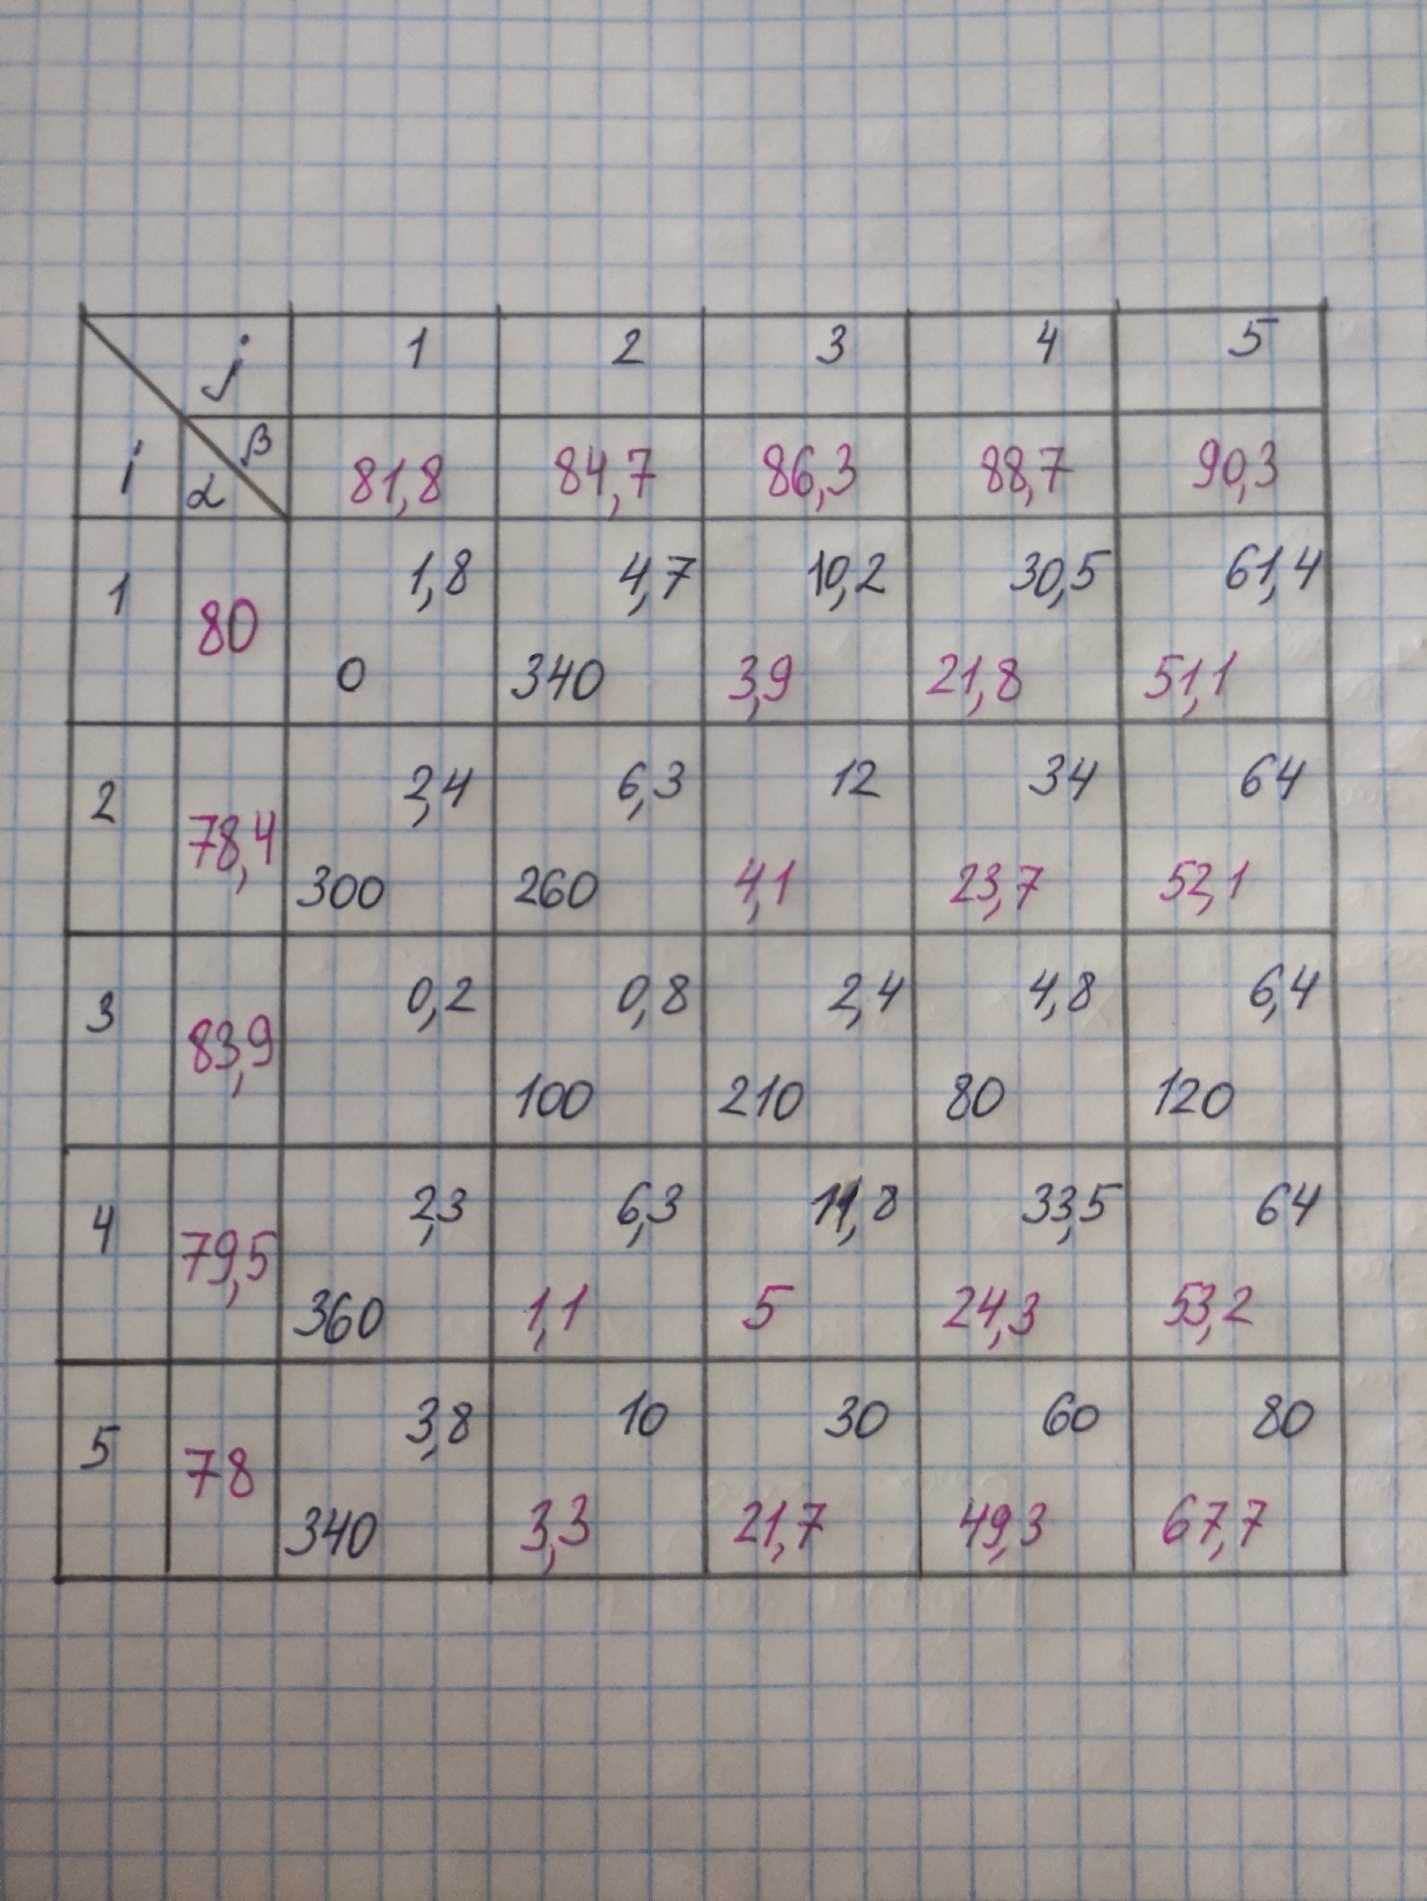 j 1 2 3 4 5
i α β 81,8 84,7 86,3 88,7 90,3
1 80 1,8 4,7 10,2 30,5 61,4
0 340 3,9 21,8 51,1
2 78,4 2,4 6,3 12 34 64
300 260 4,1 23,7 52,1
3 83,9 0,2 0,8 2,4 4,8 6,4
100 210 80 120
4 79,5 2,3 6,3 11,8 33,5 64
360 1,1 5 24,3 53,2
5 78 3,8 10 30 60 80
340 3,3 21,7 49,3 67,7